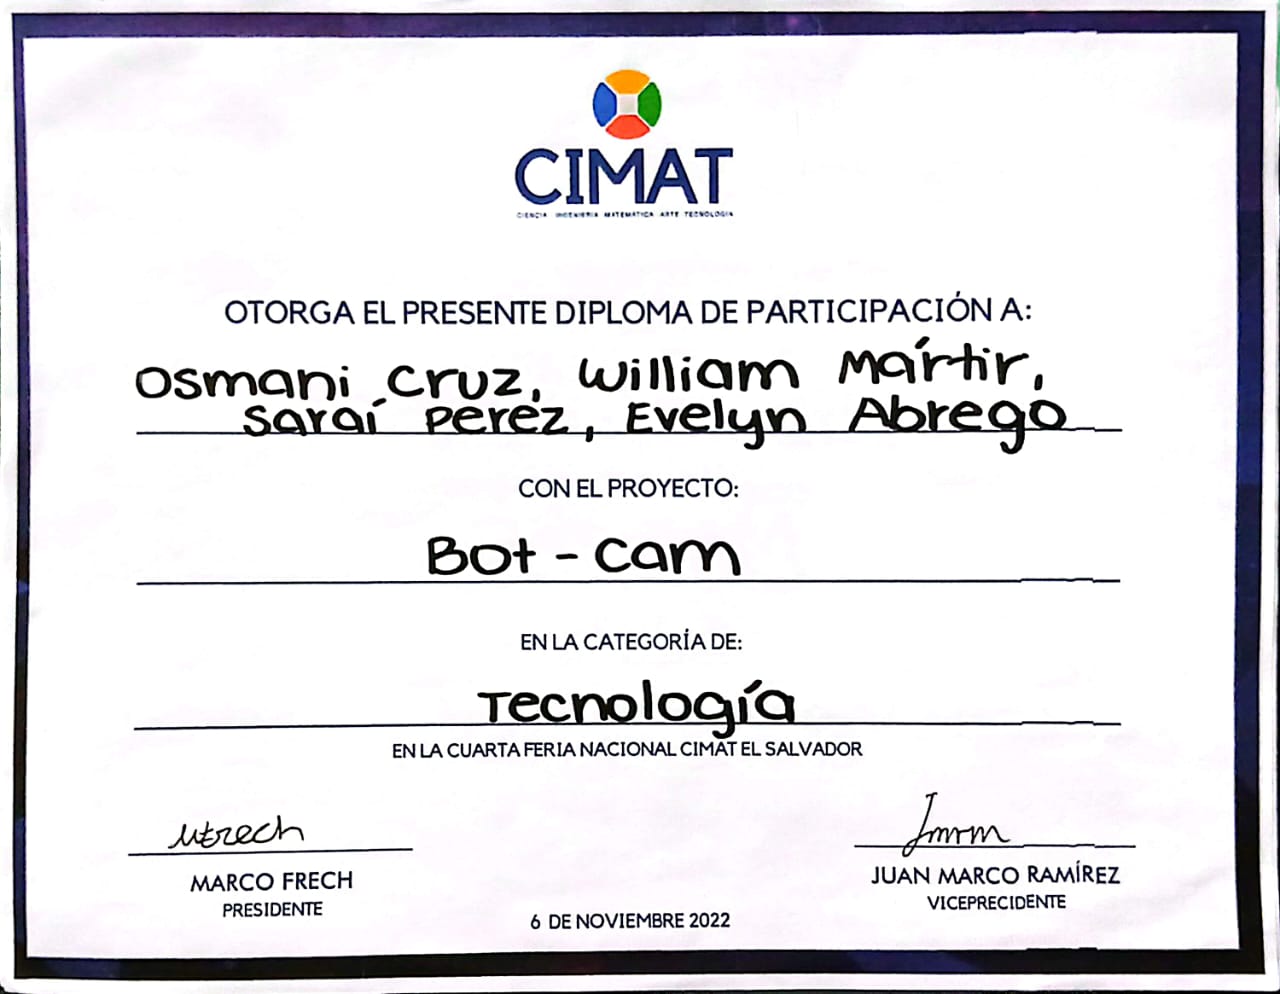 CIMAT
CIENCIA INGENIERIA MATEMATICA ARTE TECNOLOGIA
OTORGA EL PRESENTE DIPLOMA DE PARTICIPACIÓN A:
Osmani Cruz, William Mártir,
Saraí Perez, Evelyn Abrego
CON EL PROYECTO:
Bot - Cam
EN LA CATEGORÍA DE:
Tecnología
EN LA CUARTA FERIA NACIONAL CIMAT EL SALVADOR
MARCO FRECH
PRESIDENTE
JUAN MARCO RAMÍREZ
VICEPRECIDENTE
6 DE NOVIEMBRE 2022